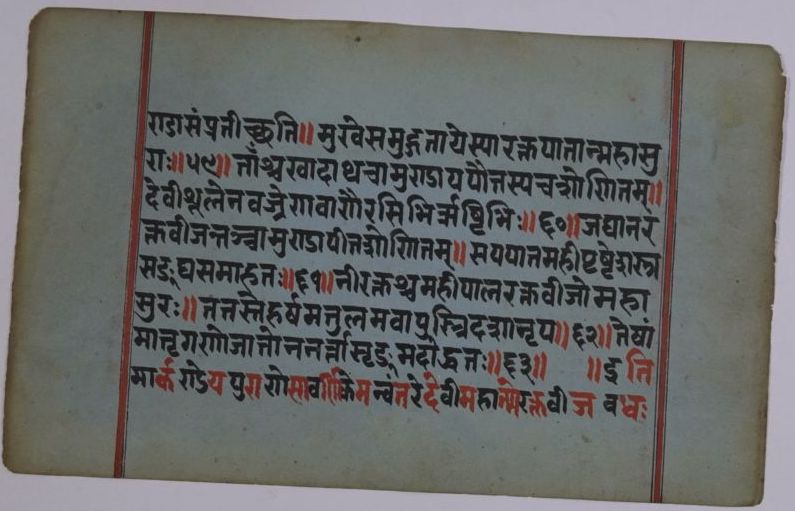 राडासंप्रतीच्छति॥ मुखेसमुद्गतायेस्यारक्तपातान्महासु
राः॥५९॥ ताँश्चखादाथचामुराडापपौतस्यचशोणितम्॥
देवीशूलेनवज्रेणवाणैरसिभिर्ऋष्टिभिः॥६०॥जघानर
क्तवीजन्तञ्चामुराडापीतशोणितम्॥ सपपातमहीपृष्टेशस्त्र
सङ्घसमाहतः॥६१॥नीरक्तश्चमहीपालरक्तवीजोमहा
सुरः॥ ततस्तेहर्षमतुलमवापुस्त्रिदशानृप॥६२॥तेषां
मातृगणोजातोननर्त्तासृङ्मदोद्धतः॥६३॥ ॥इति
मार्कराडेयपुराणेसावर्णिकेमन्वंतरेदेवीमहात्म्येरक्तवीजवधः